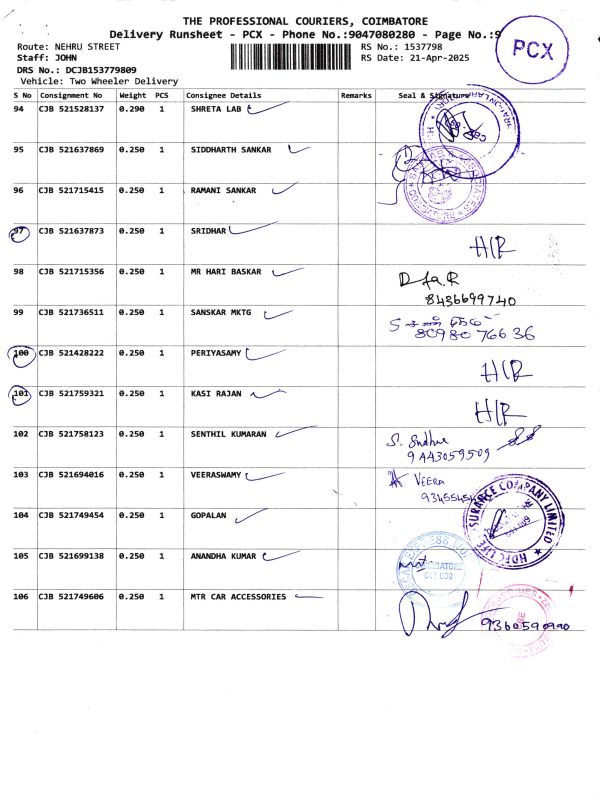 THE PROFESSIONAL COURIERS, COIMBATORE
Delivery Runsheet - PCX - Phone No.:9047080280 - Page No.:9
PCX
Route: NEHRU STREET
RS No.: 1537798
Staff: JOHN
RS Date: 21-Apr-2025
DRS No.: DCJB153779809
Vehicle: Two Wheeler Delivery
S No Consignment No Weight PCS Consignee Details Remarks Seal & Signature
94 CJB 521528137 0.290 1 SHRETA LAB
95 CJB 521637869 0.250 1 SIDDHARTH SANKAR
96 CJB 521715415 0.250 1 RAMANI SANKAR
97 CJB 521637873 0.250 1 SRIDHAR
98 CJB 521715356 0.250 1 MR HARI BASKAR
8436699740
99 CJB 521736511 0.250 1 SANSKAR MKTG
80980 76636
100 CJB 521428222 0.250 1 PERIYASAMY
101 CJB 521759321 0.250 1 KASI RAJAN
102 CJB 521758123 0.250 1 SENTHIL KUMARAN
9443059509
103 CJB 521694016 0.250 1 VEERASWAMY
VEERA
104 CJB 521749454 0.250 1 GOPALAN
HDFC LIFE INSURANCE COMPANY LIMITED
105 CJB 521699138 0.250 1 ANANDHA KUMAR
106 CJB 521749606 0.250 1 MTR CAR ACCESSORIES